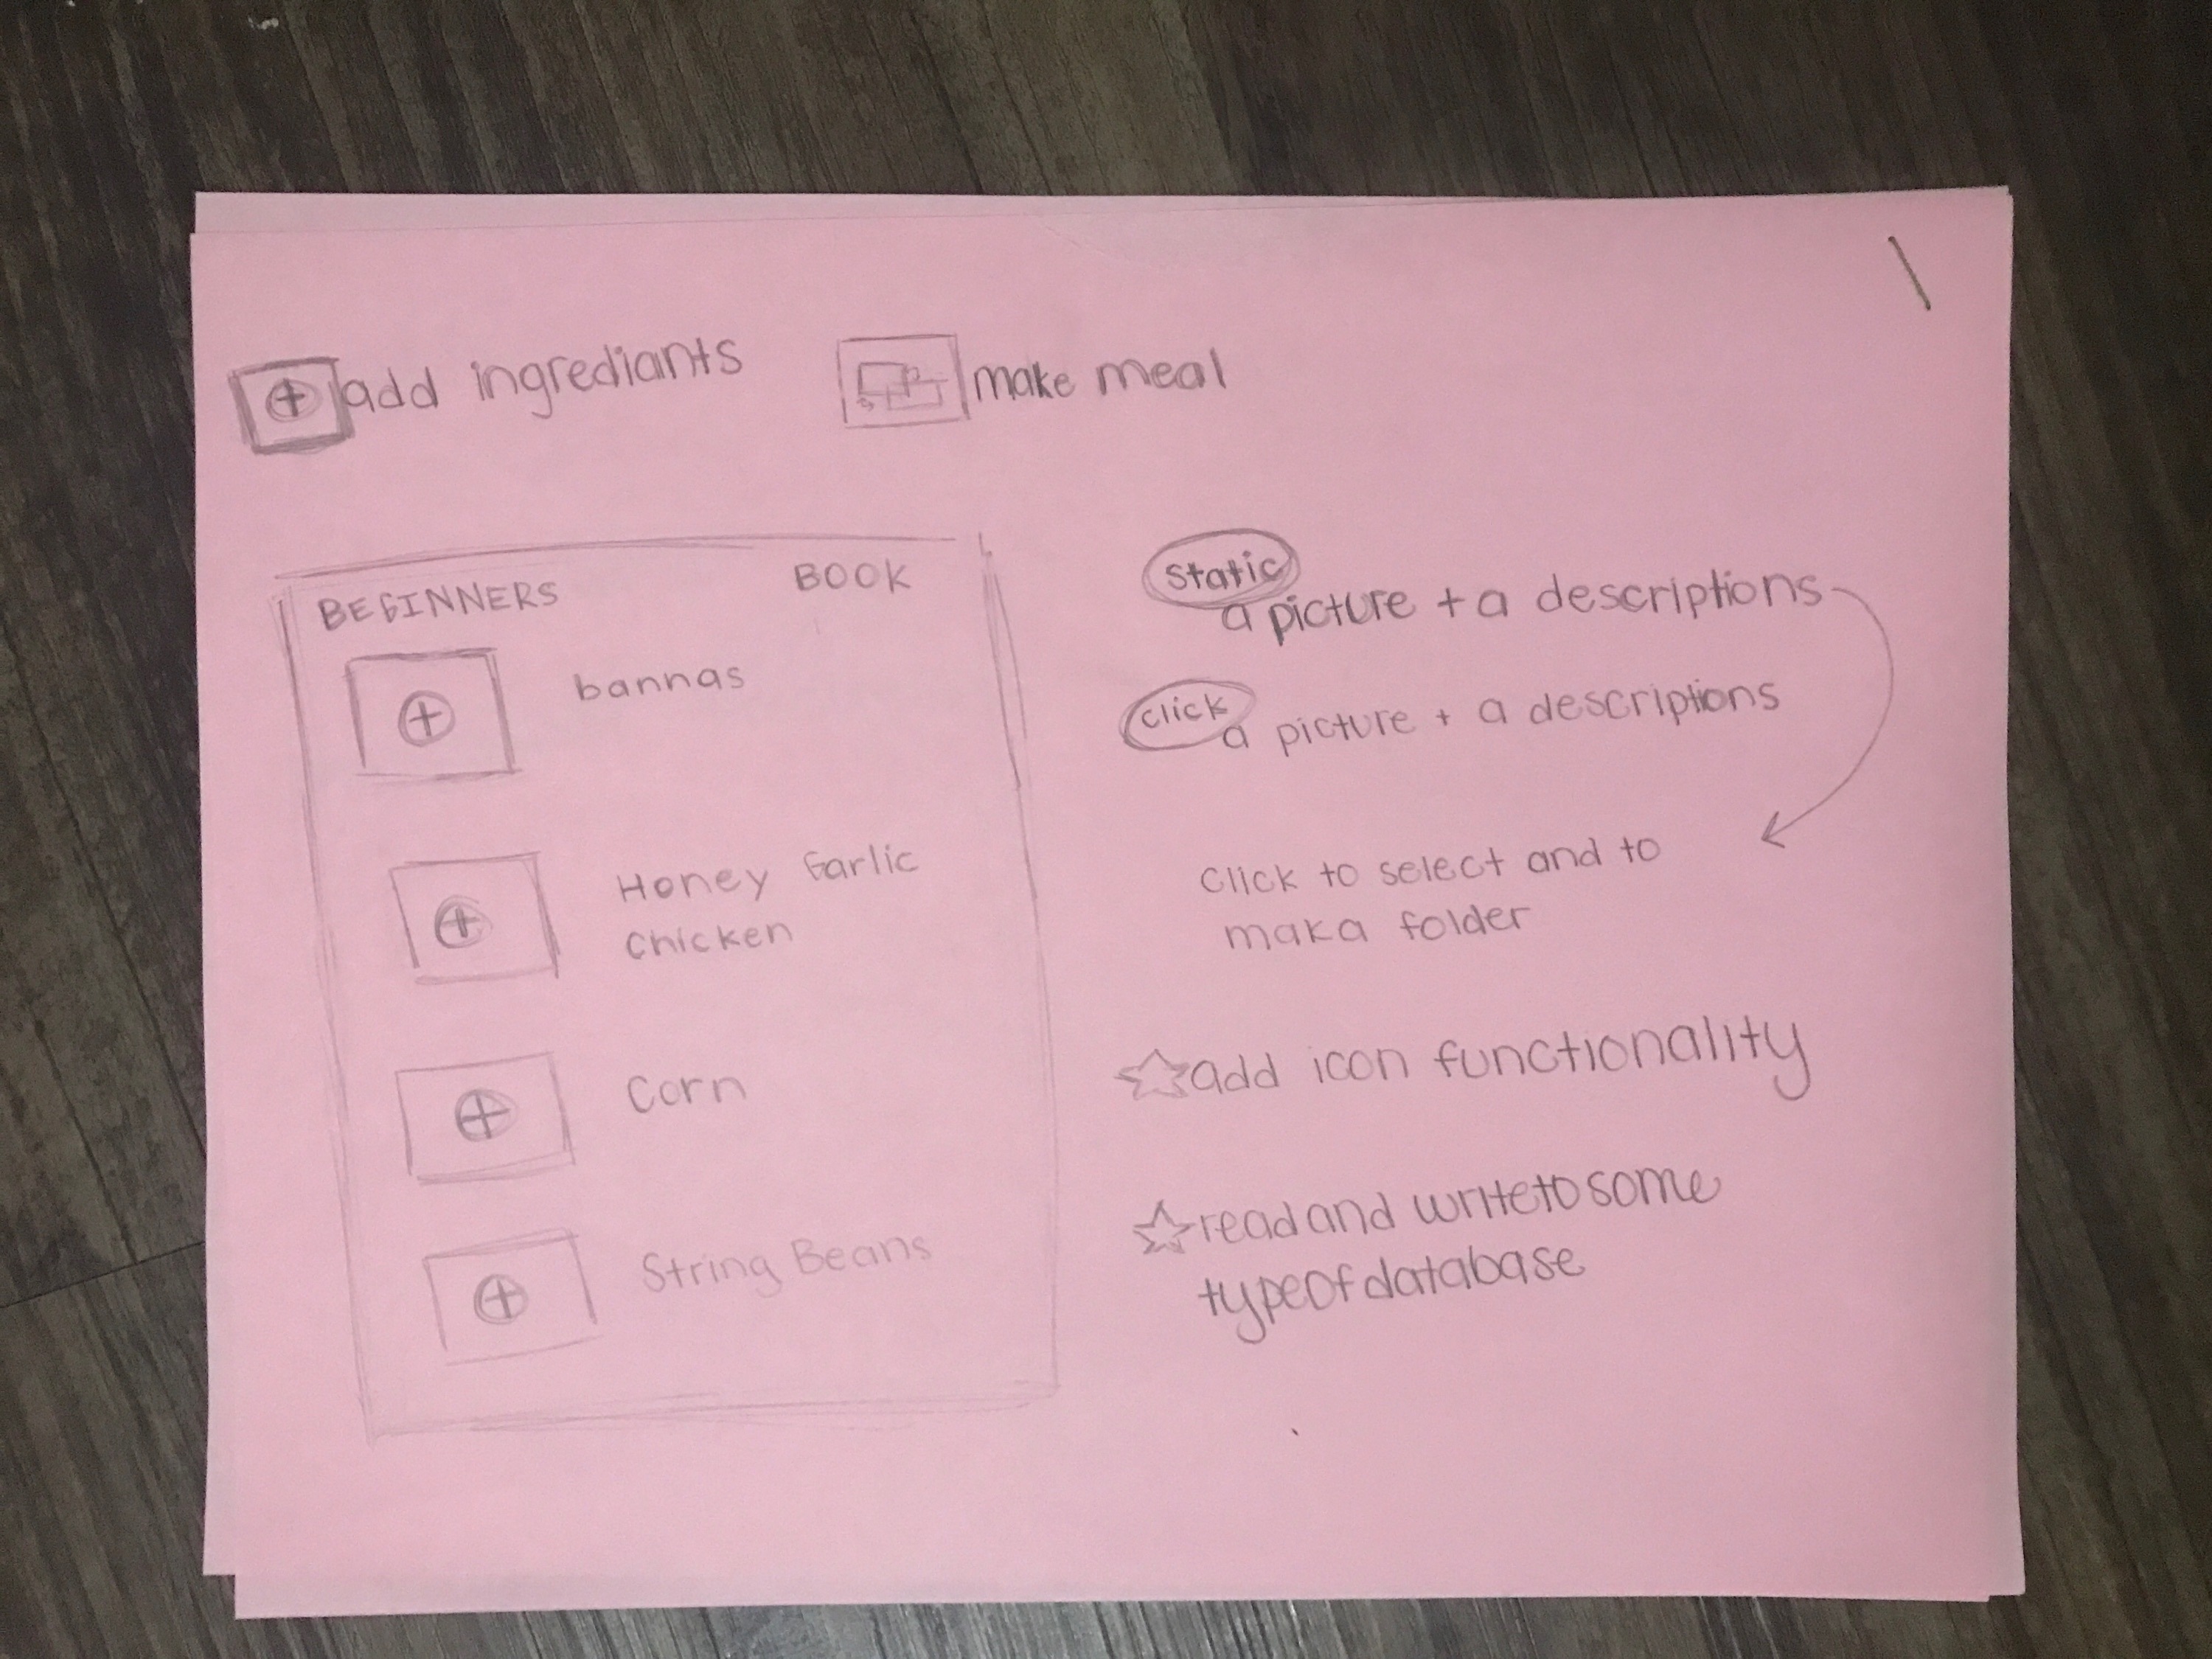 add ingrediants
make meal
BEGINNERS BOOK
bannas
Honey Garlic
Chicken
Corn
String Beans
static
a picture + a descriptions
click
a picture + a descriptions
Click to select and to
maka folder
add icon functionality
read and write to some
type of database